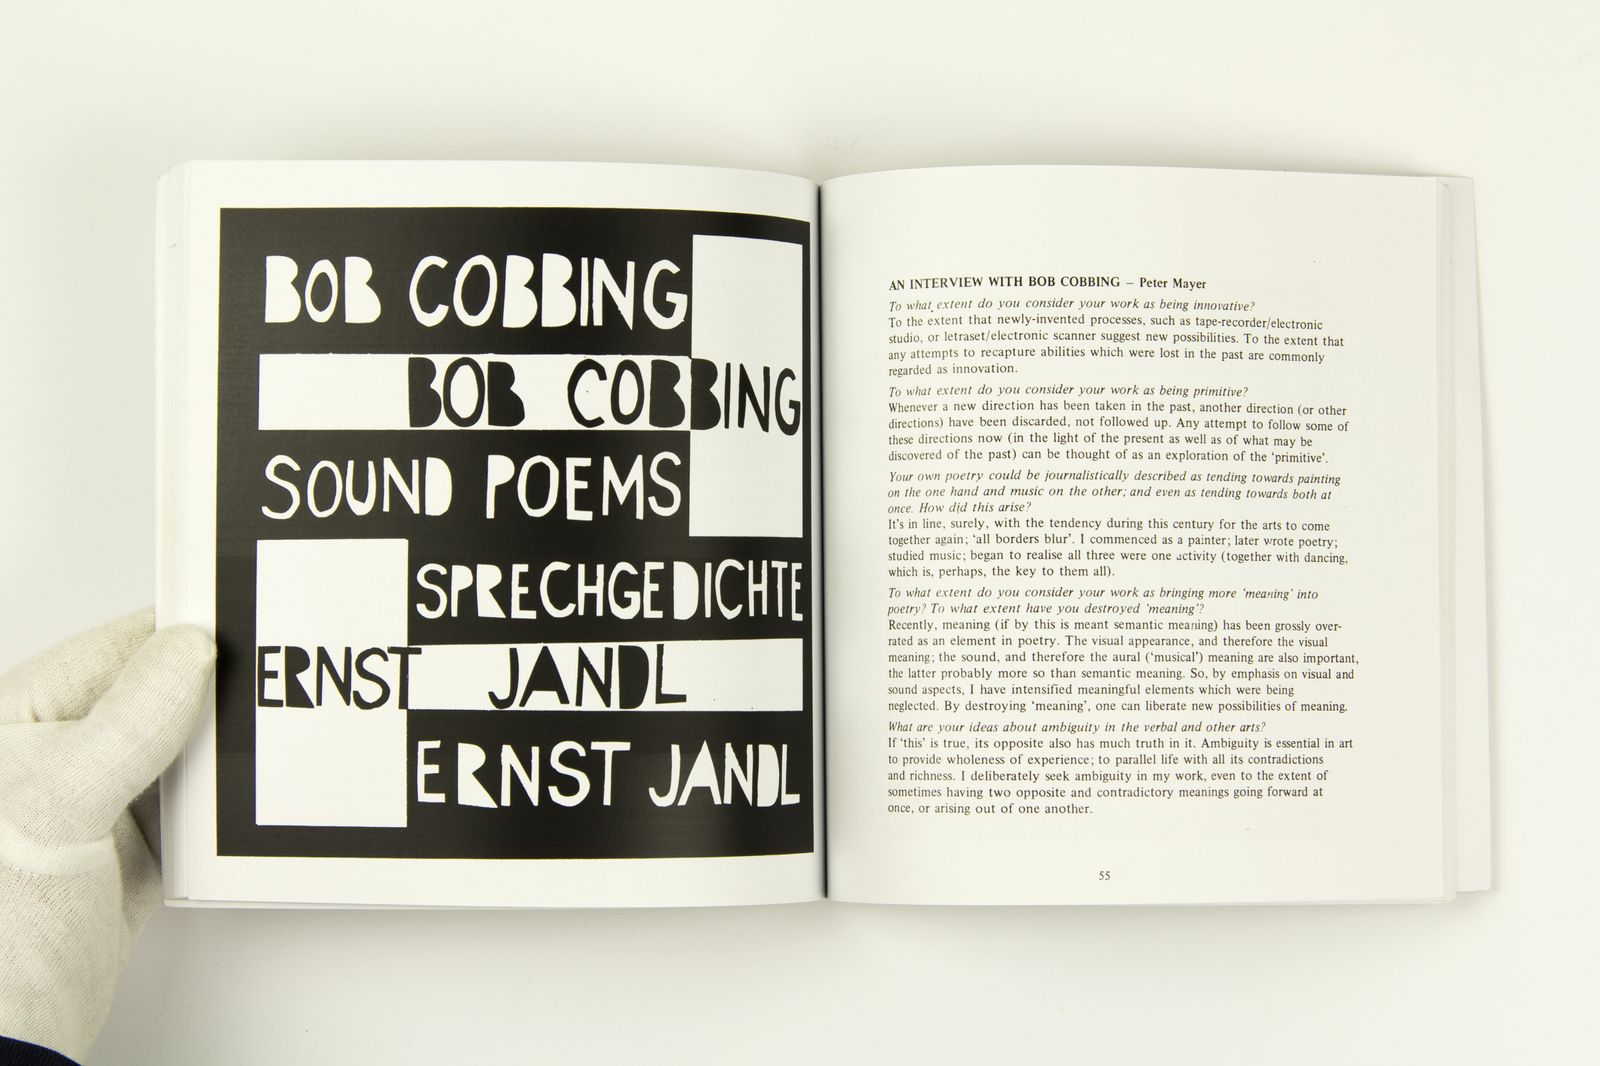 BOB COBBING
BOB COBBING
SOUND POEMS
SPRECHGEDICHTE
ERNST JANDL
ERNST JANDL
AN INTERVIEW WITH BOB COBBING – Peter Mayer
To what extent do you consider your work as being innovative?
To the extent that newly-invented processes, such as tape-recorder/electronic
studio, or letraset/electronic scanner suggest new possibilities. To the extent that
any attempts to recapture abilities which were lost in the past are commonly
regarded as innovation.
To what extent do you consider your work as being primitive?
Whenever a new direction has been taken in the past, another direction (or other
directions) have been discarded, not followed up. Any attempt to follow some of
these directions now (in the light of the present as well as of what may be
discovered of the past) can be thought of as an exploration of the ‘primitive’.
Your own poetry could be journalistically described as tending towards painting
on the one hand and music on the other; and even as tending towards both at
once. How did this arise?
It’s in line, surely, with the tendency during this century for the arts to come
together again; ‘all borders blur’. I commenced as a painter; later wrote poetry;
studied music; began to realise all three were one activity (together with dancing,
which is, perhaps, the key to them all).
To what extent do you consider your work as bringing more ‘meaning’ into
poetry? To what extent have you destroyed ‘meaning’?
Recently, meaning (if by this is meant semantic meaning) has been grossly over-
rated as an element in poetry. The visual appearance, and therefore the visual
meaning; the sound, and therefore the aural (‘musical’) meaning are also important,
the latter probably more so than semantic meaning. So, by emphasis on visual and
sound aspects, I have intensified meaningful elements which were being
neglected. By destroying ‘meaning’, one can liberate new possibilities of meaning.
What are your ideas about ambiguity in the verbal and other arts?
If ‘this’ is true, its opposite also has much truth in it. Ambiguity is essential in art
to provide wholeness of experience; to parallel life with all its contradictions
and richness. I deliberately seek ambiguity in my work, even to the extent of
sometimes having two opposite and contradictory meanings going forward at
once, or arising out of one another.
55